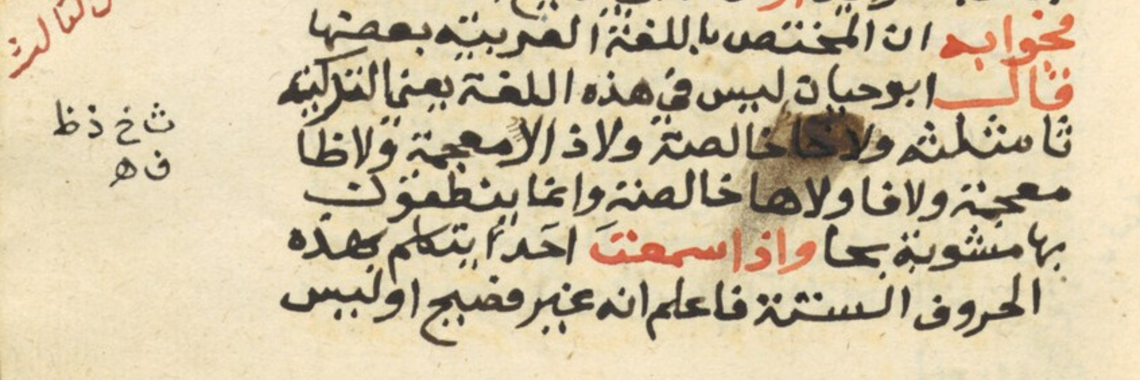 فجوابه ان المختص باللغة العربيه بعضها
قال ابوحيان ليس في هذه اللغة يعني التركية
ثا مثلثه ولا خا خالصة ولا ذالا معجمة ولا ظا
معجمة ولا فا ولا ها خالصة وانما ينطقون
بها مشوبة بحا واذا سمعت احدا يتكلم بهذه
الحروف الستة فاعلم انه غير فصيح او ليس
ث خ ذ ظ
ف ه
الثالث